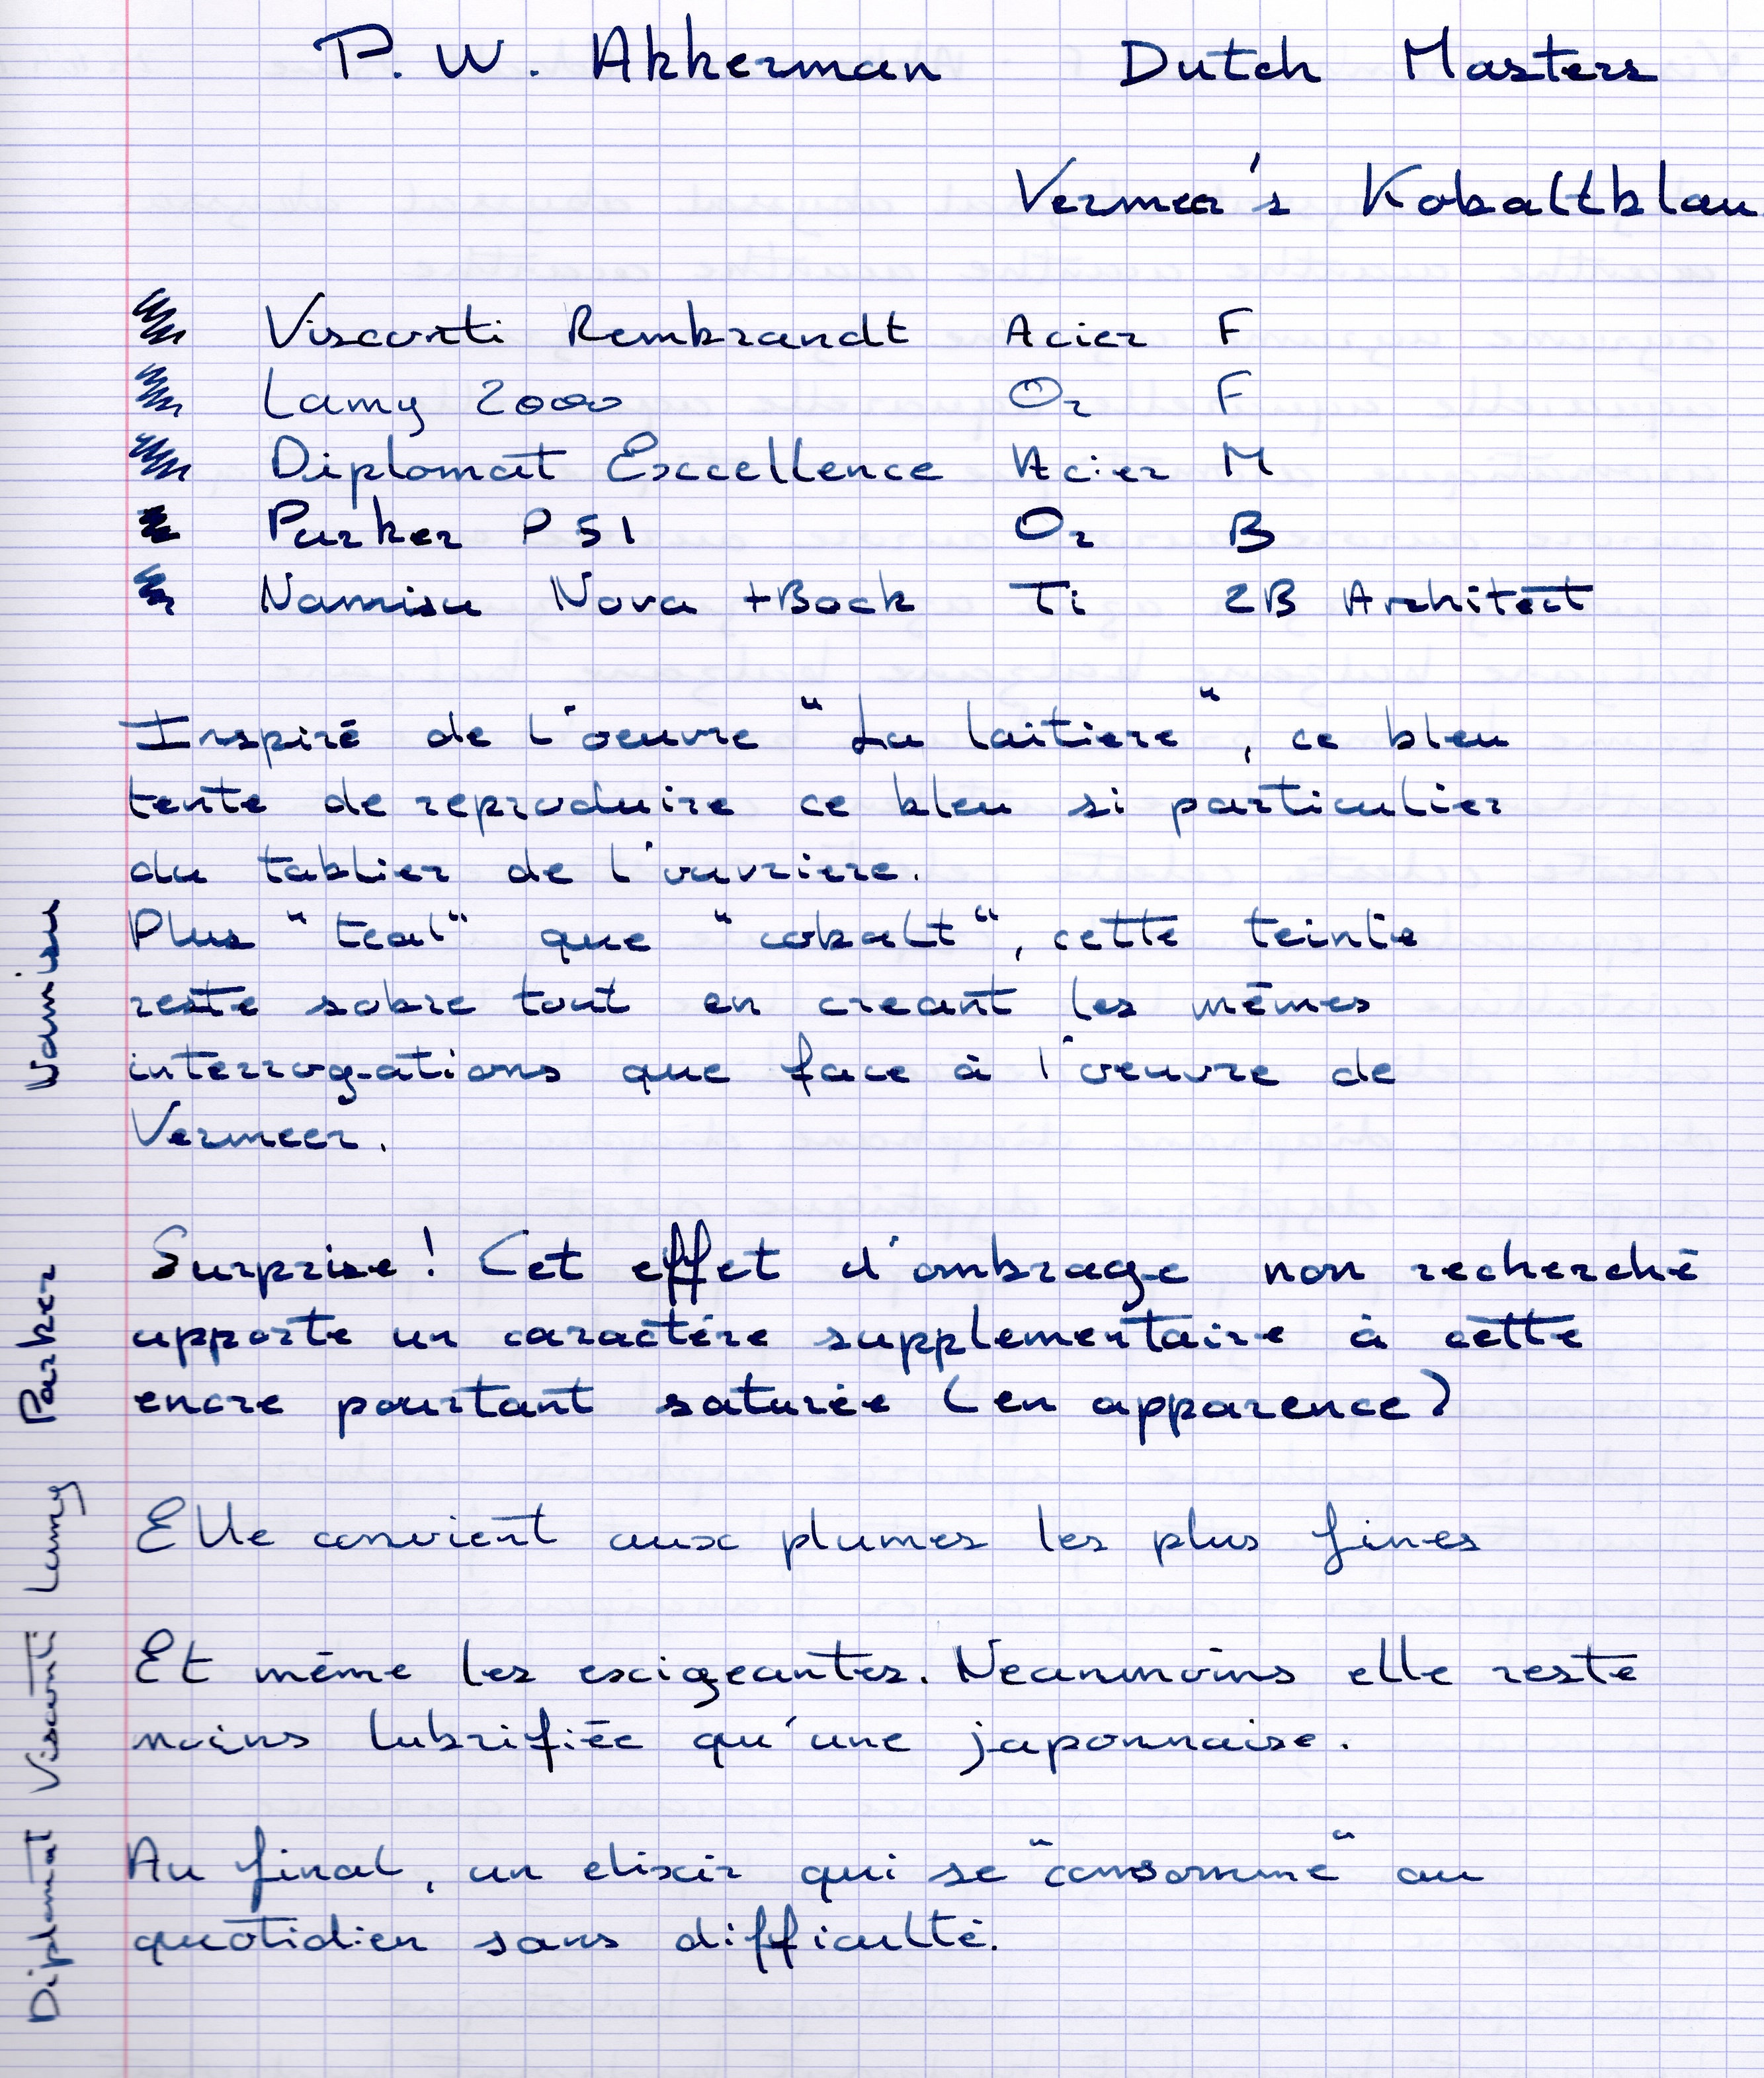 P. W. Akkerman Dutch Masters
Vermeer's Kobaltblau
Visconti Rembrandt Acier F
Lamy 2000 Or F
Diplomat Excellence Acier M
Parker P51 Or B
Namisu Nova +Bock Ti 2B Architect
Inspiré de l'oeuvre "La laitiere", ce bleu
tente de reproduire ce bleu si particulier
du tablier de l'ouvriere.
Plus "teal" que "cobalt", cette teinte
reste sobre tout en creant les mêmes
interrogations que face à l'oeuvre de
Vermeer.
Namisu
Surprise! Cet effet d'ombrage non recherché
apporte un caractére supplementaire à cette
encre pourtant saturée (en apparence)
Parker
Elle convient aux plumes les plus fines
Lamy
Et même les exigeantes. Neanmoins elle reste
moins lubrifiée qu'une japonnaise.
Visconti
Au final, un elixir qui se "consomme" au
quotidien sans difficulté.
Diplomat